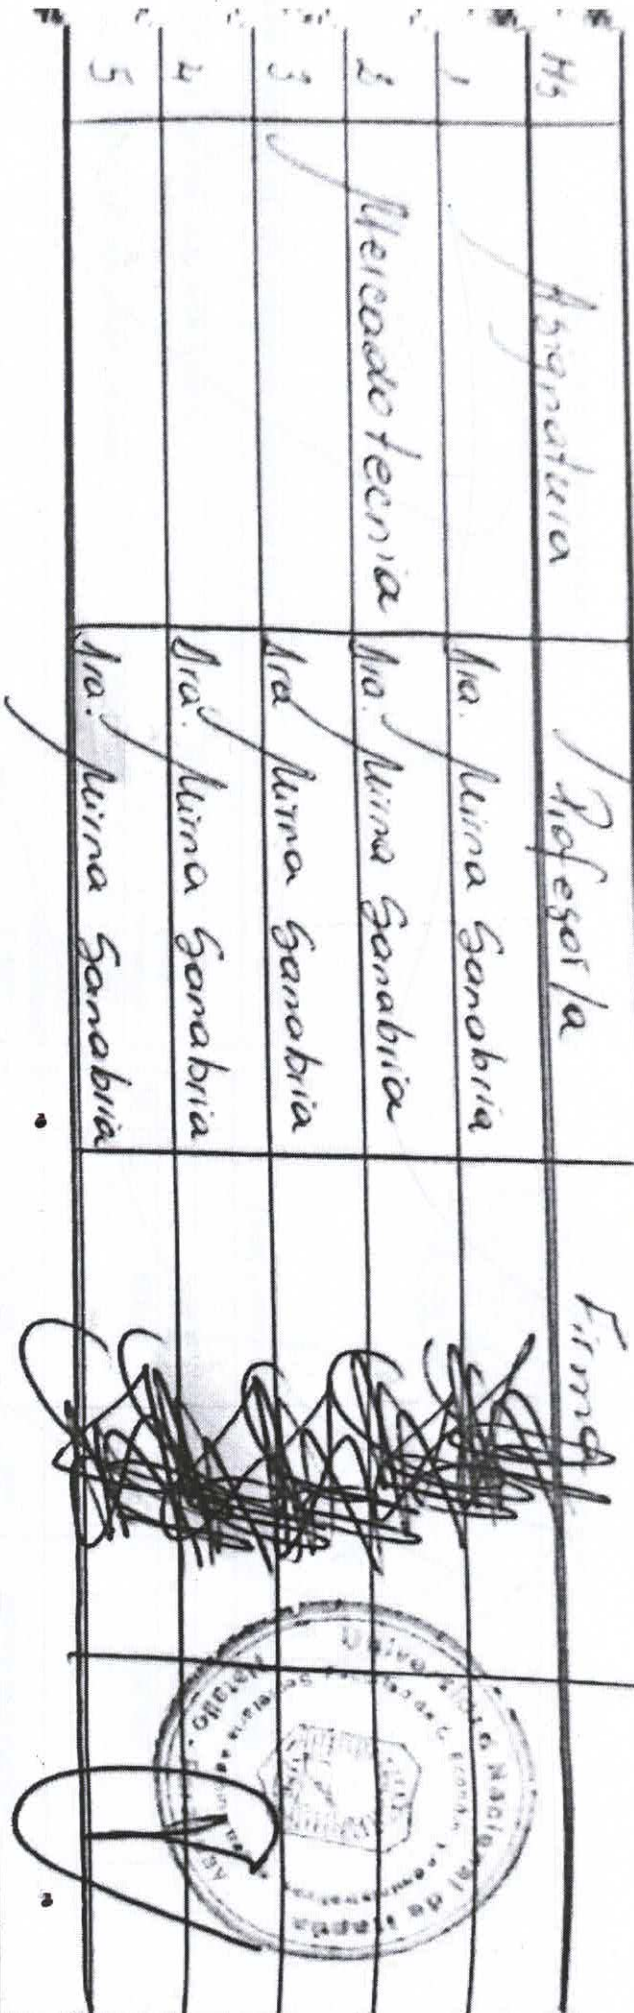 Hs Asignatura Profesor/a Firma
1 Dra. Mirna Sanabria
2 Mercadotecnia Dra. Mirna Sanabria
3 Dra Mirna Sanabria
4 Dra. Mirna Sanabria
5 Dra. Mirna Sanabria
Nacional de Itapúa